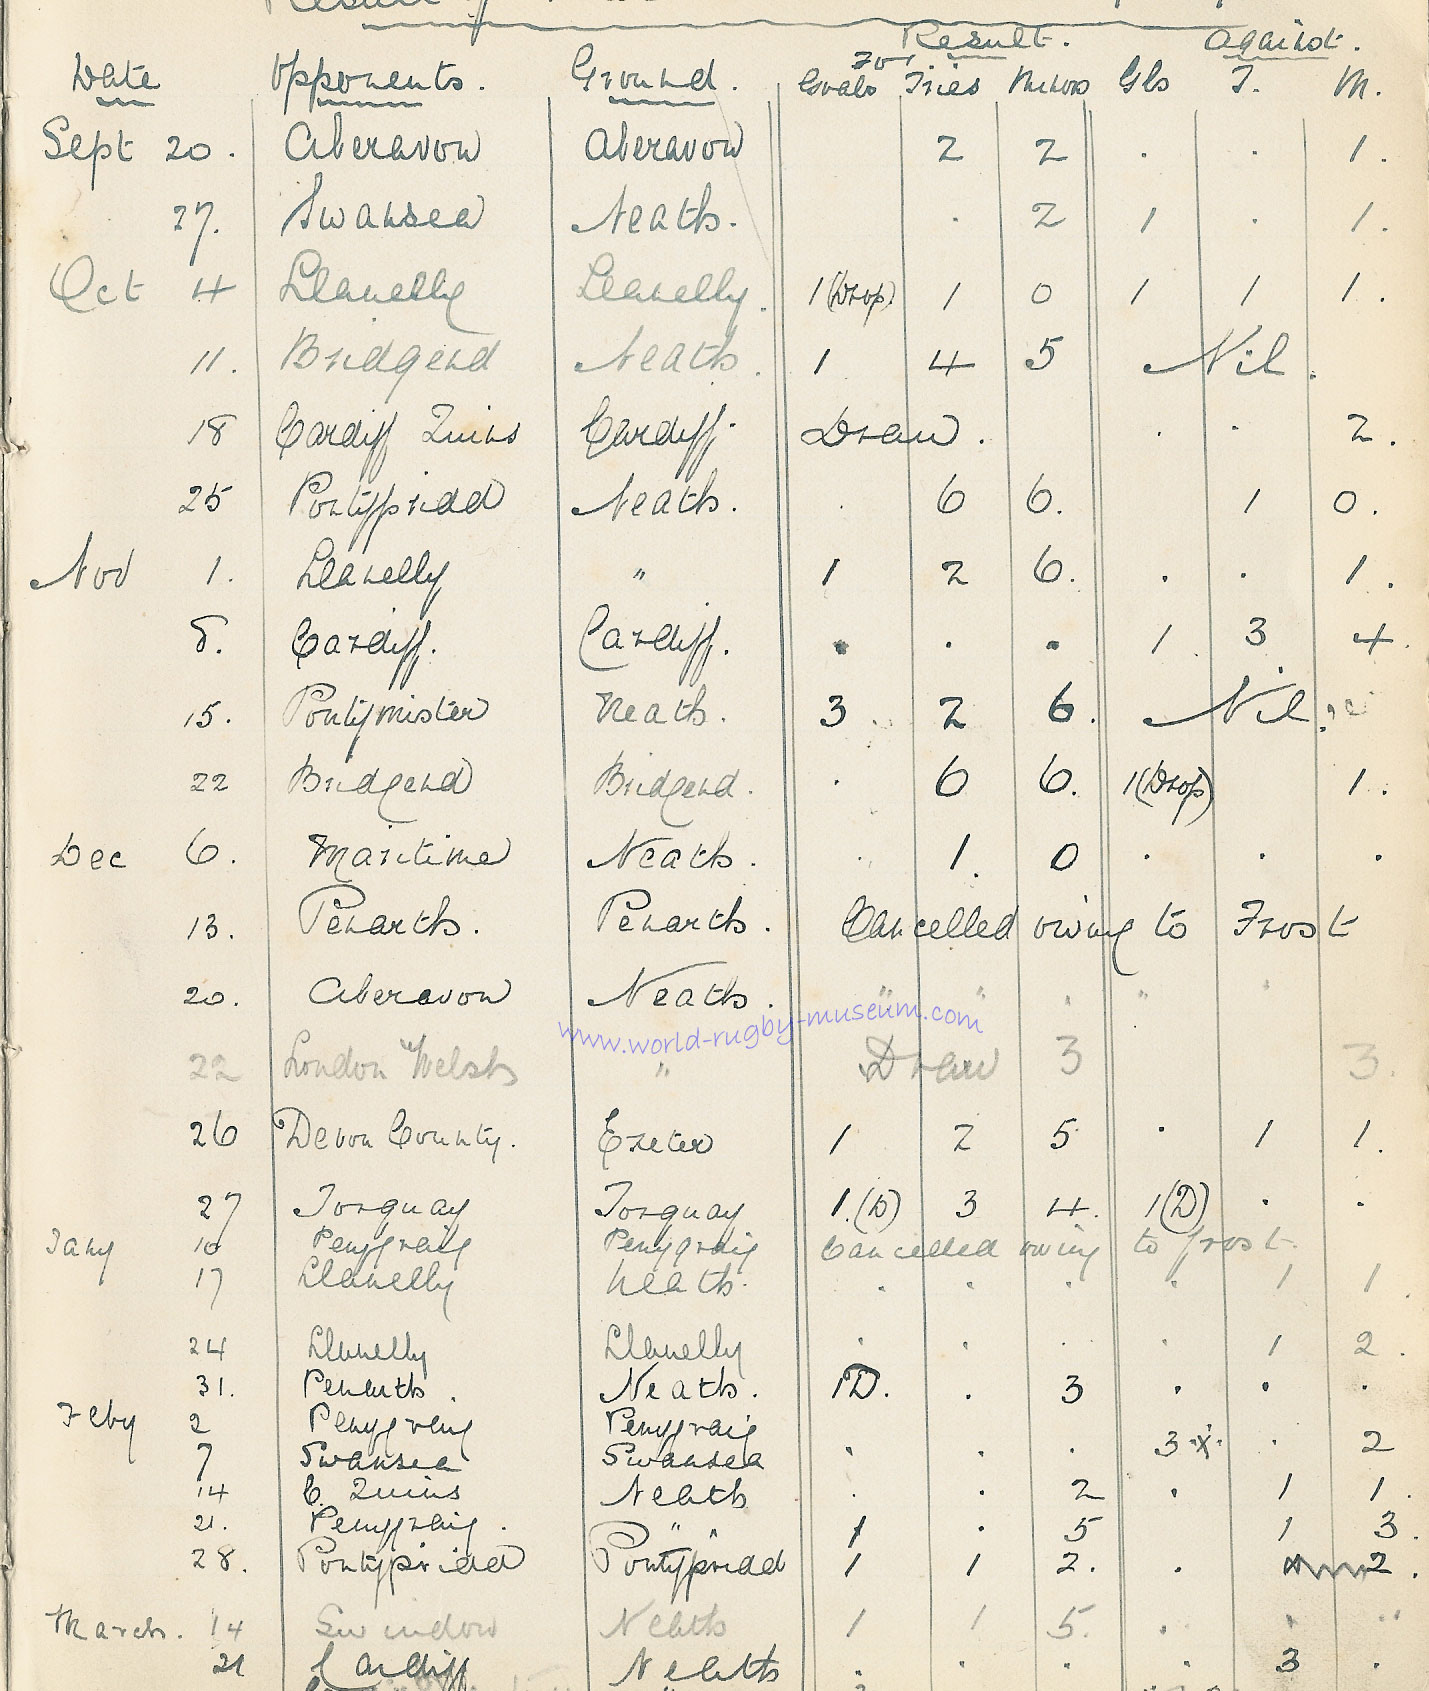 Result of
Result. Against.
Date Opponents. Ground. For Goals Tries Minors Gls T. M.
Sept 20. Aberavon Aberavon 2 2 . . 1.
27. Swansea Neath. . 2 1 . 1.
Oct 4 Llanelly Llanelly. 1(Drop) 1 0 1 1 1.
11. Bridgend Neath. 1 4 5 Nil.
18 Cardiff Quins Cardiff. Draw. . . 2.
25 Pontypridd Neath. . 6 6. 1 0.
Nov 1. Llanelly " 1 2 6. . . 1.
8. Cardiff. Cardiff. . . . 1 3 4.
15. Pontymister Neath. 3. 2 6. Nil.
22 Bridgend Bridgend. . 6 6. 1(Drop) 1.
Dec 6. Maritime Neath. . 1. 0 . . .
13. Penarth. Penarth. Cancelled owing to Frost
20. Aberavon Neath. " " " " "
www.world-rugby-museum.com
22 London Welsh " Draw 3 3.
26 Devon County. Exeter 1 2 5 . 1 1.
27 Torquay Torquay 1.(D) 3 4. 1(D) . .
Jany 10 Penygraig Penygraig Cancelled owing to frost.
17 Llanelly Neath. . . . . 1 1.
24 Llanelly Llanelly . . . . 1 2.
31. Penarth. Neath. 1D. . 3 . . .
Feby 2 Penygraig Penygraig
7 Swansea Swansea . . . 3 .x. . 2
14 C. Quins Neath . . 2 . 1 1.
21. Penygraig. " " 1 . 5 1 3.
28. Pontypridd Pontypridd 1 1 2. . 2.
March. 14 Swindon Neath 1 1 5. . . "
21 Cardiff Neath . . . . 3 .